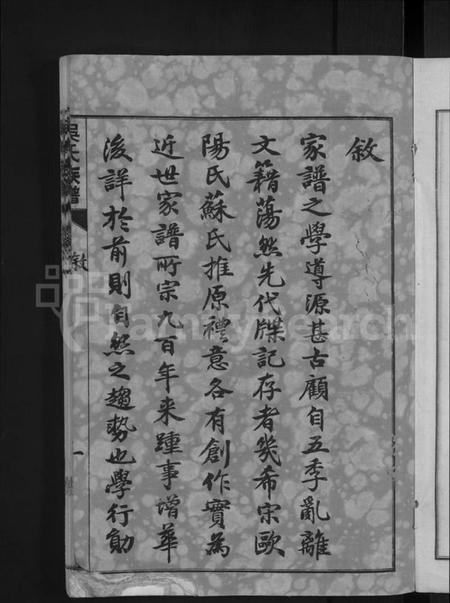 敘
家譜之學導源甚古顧自五季亂離
文籍蕩然先代牒記存者幾希宋歐
陽氏蘇氏推原禮意各有創作實爲
近世家譜所宗九百年来踵事增華
後詳於前則自然之趨勢也學行勛
吳氏族譜
敘
一
FamilySearch